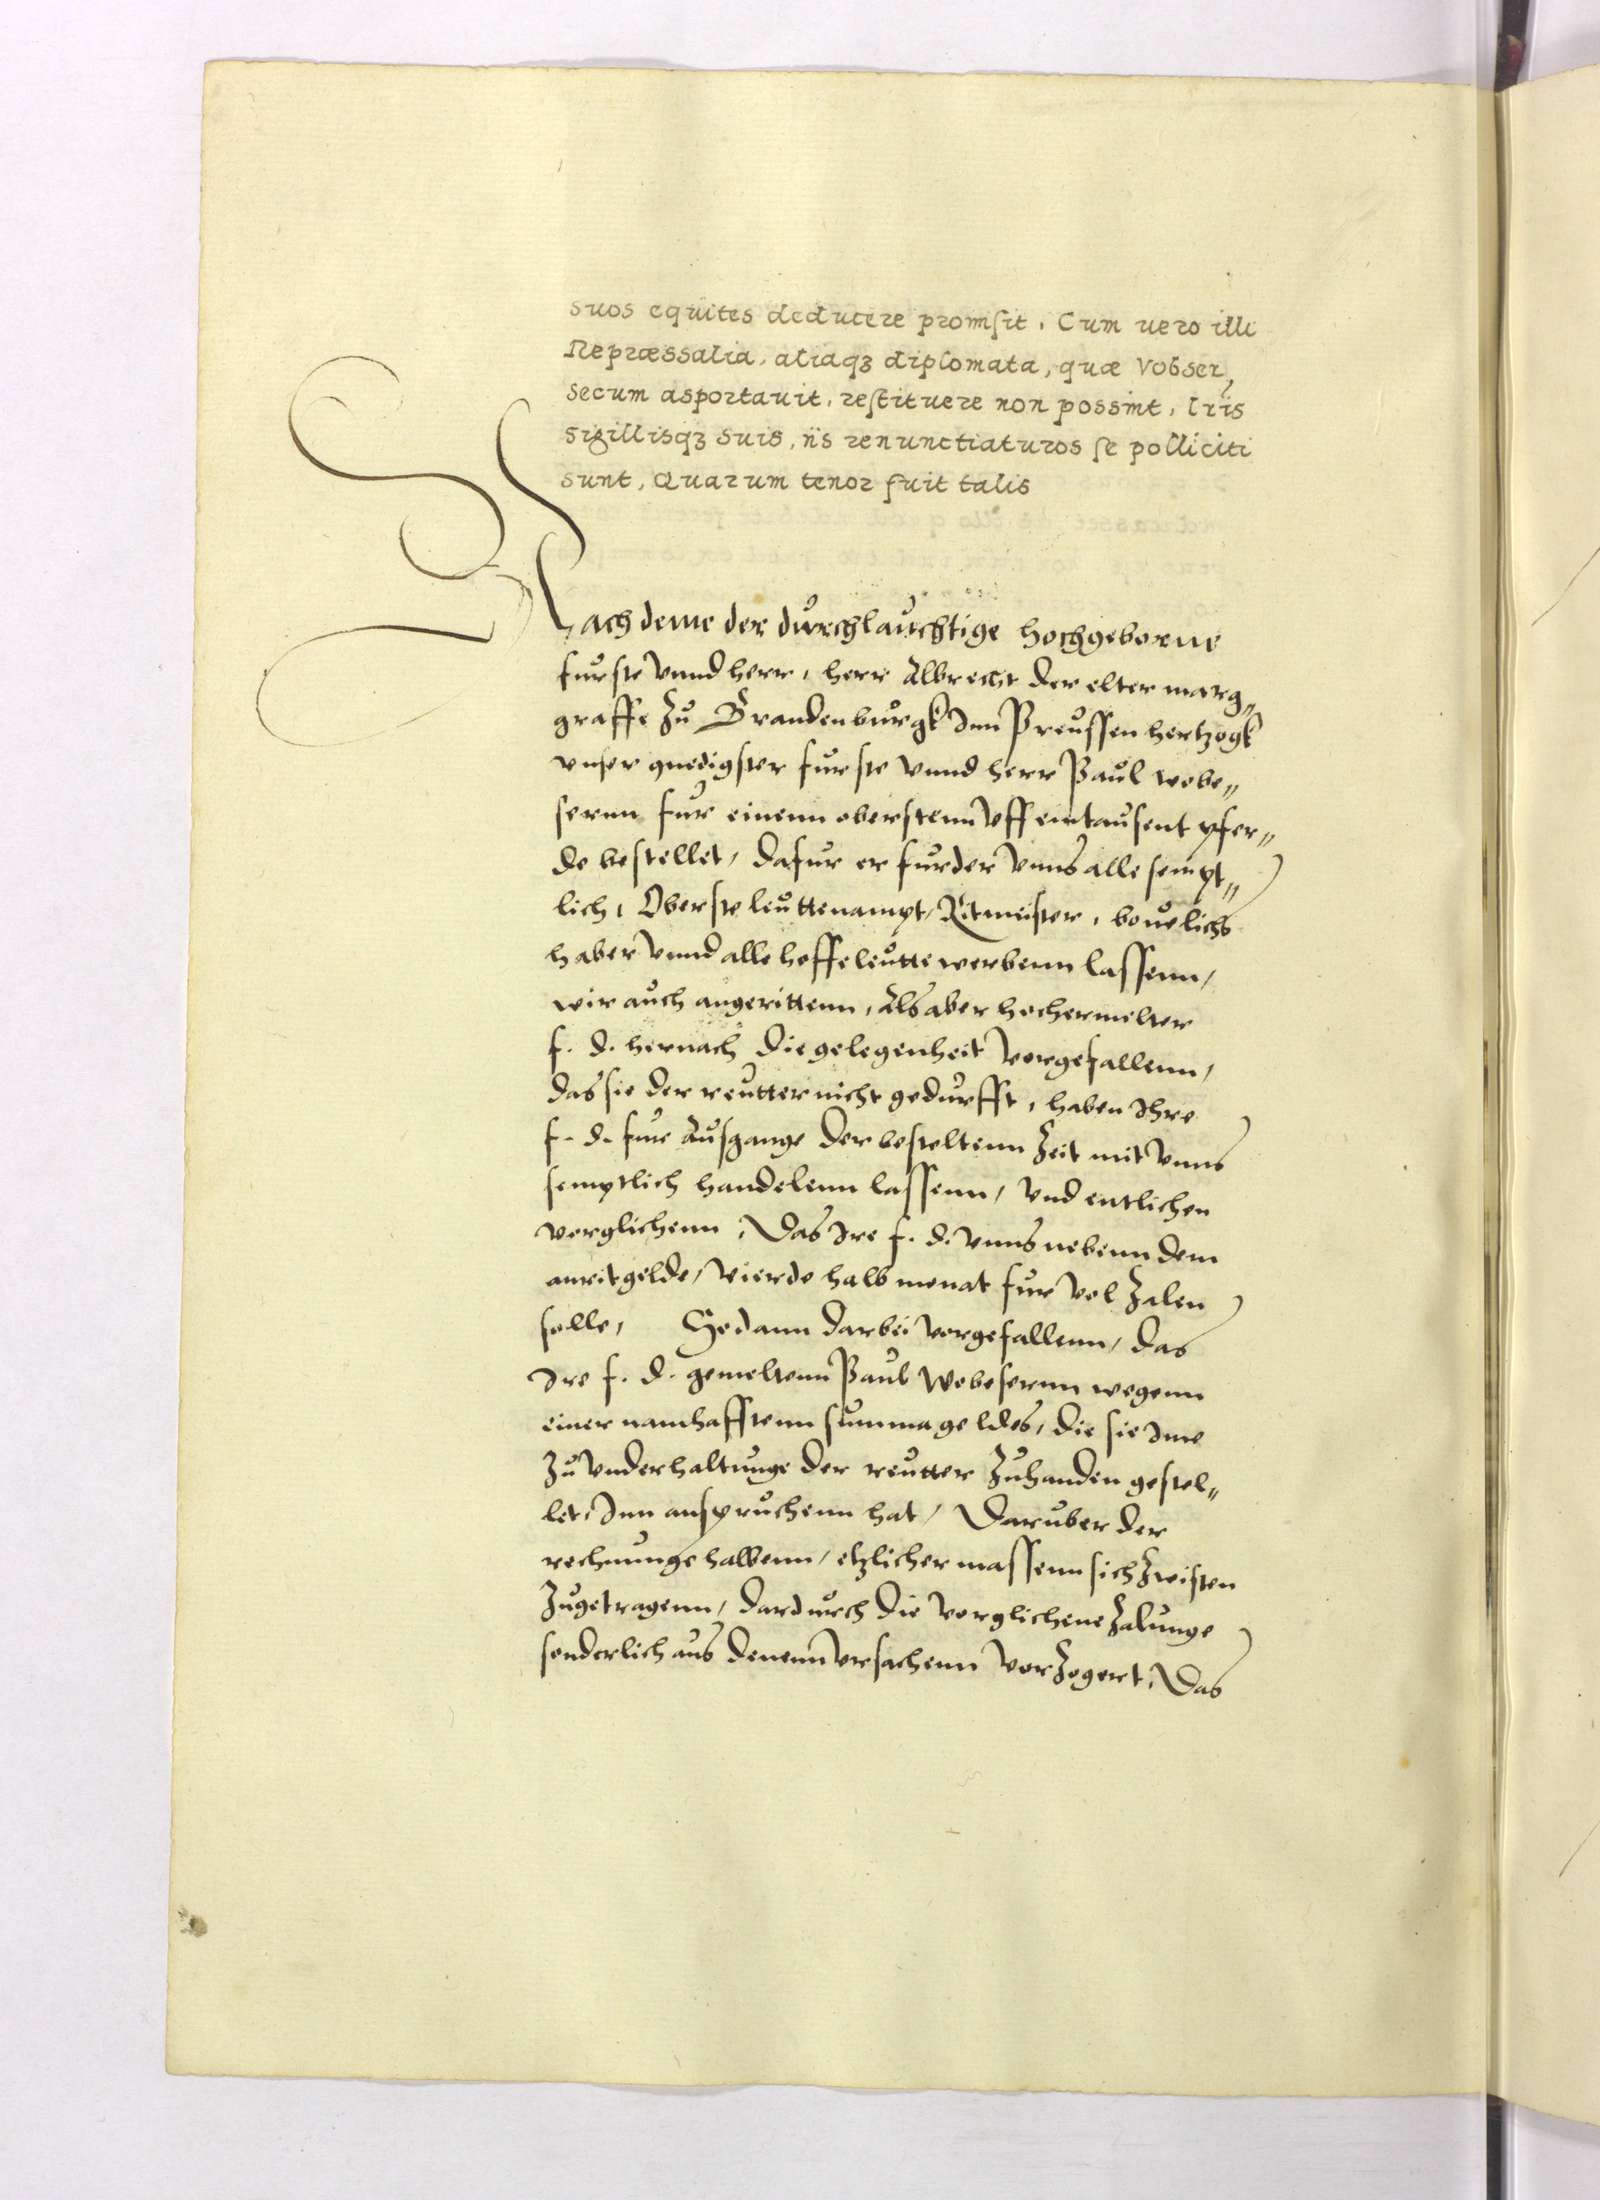 suos equites deducere promsit. Cum uero illi
Repræssalia, aliaqꝫ diplomata, quæ Vobser,
secum asportauit, restituere non possint, lris
sigillisqꝫ suis, iis renunctiaturos se polliciti
sunt, Quarum tenor fuit talis
Nach deme der durchlauchtige hochgeborne
furste vnnd herr, herr Albrecht der elter marg„
graffe zu Brandenburgk Inn Preussen hertzogk
vnser gnedigster furste vnnd herr Paul wobe„
sernn fur einenn oberstenn vff eintausent pfer„
de bestellet, dafur er furder vnns alle sempt„
lich, Oberste leuttenampt, Ritmeister, beuelichs
haber vnnd alle hoffeleutte werbenn lassenn,
wir auch angerittenn, Als aber hochermelter
f. d. hernach die gelegenheit vorgefallenn,
das sie der reutter nicht gedurfft, haben Ihre
f. d. fure Ausgange der bestelltenn Zeit mit vnns
semptlich handelenn lassenn, vnd entlichen
verglichenn, Das Ire f. d. vnns nebenn dem
anritgelde, vierde halb monat fur vol Zalen
solle, So dann darbei vorgefallenn, das
Ire f. d. gemeltenn Paul Wobesernn wegenn
einer namhafftenn summa geldes, die sie Ime
zu vnderhaltunge der reutter Zuhanden gestel„
let, Inn anspruchenn hat, Daruber der
rechnunge halbenn, etzlicher massenn sich Zwisten
Zugetragenn, dardurch die verglichene Zalunge
sonderlich aus denenn vrsachenn vorzogert, Das